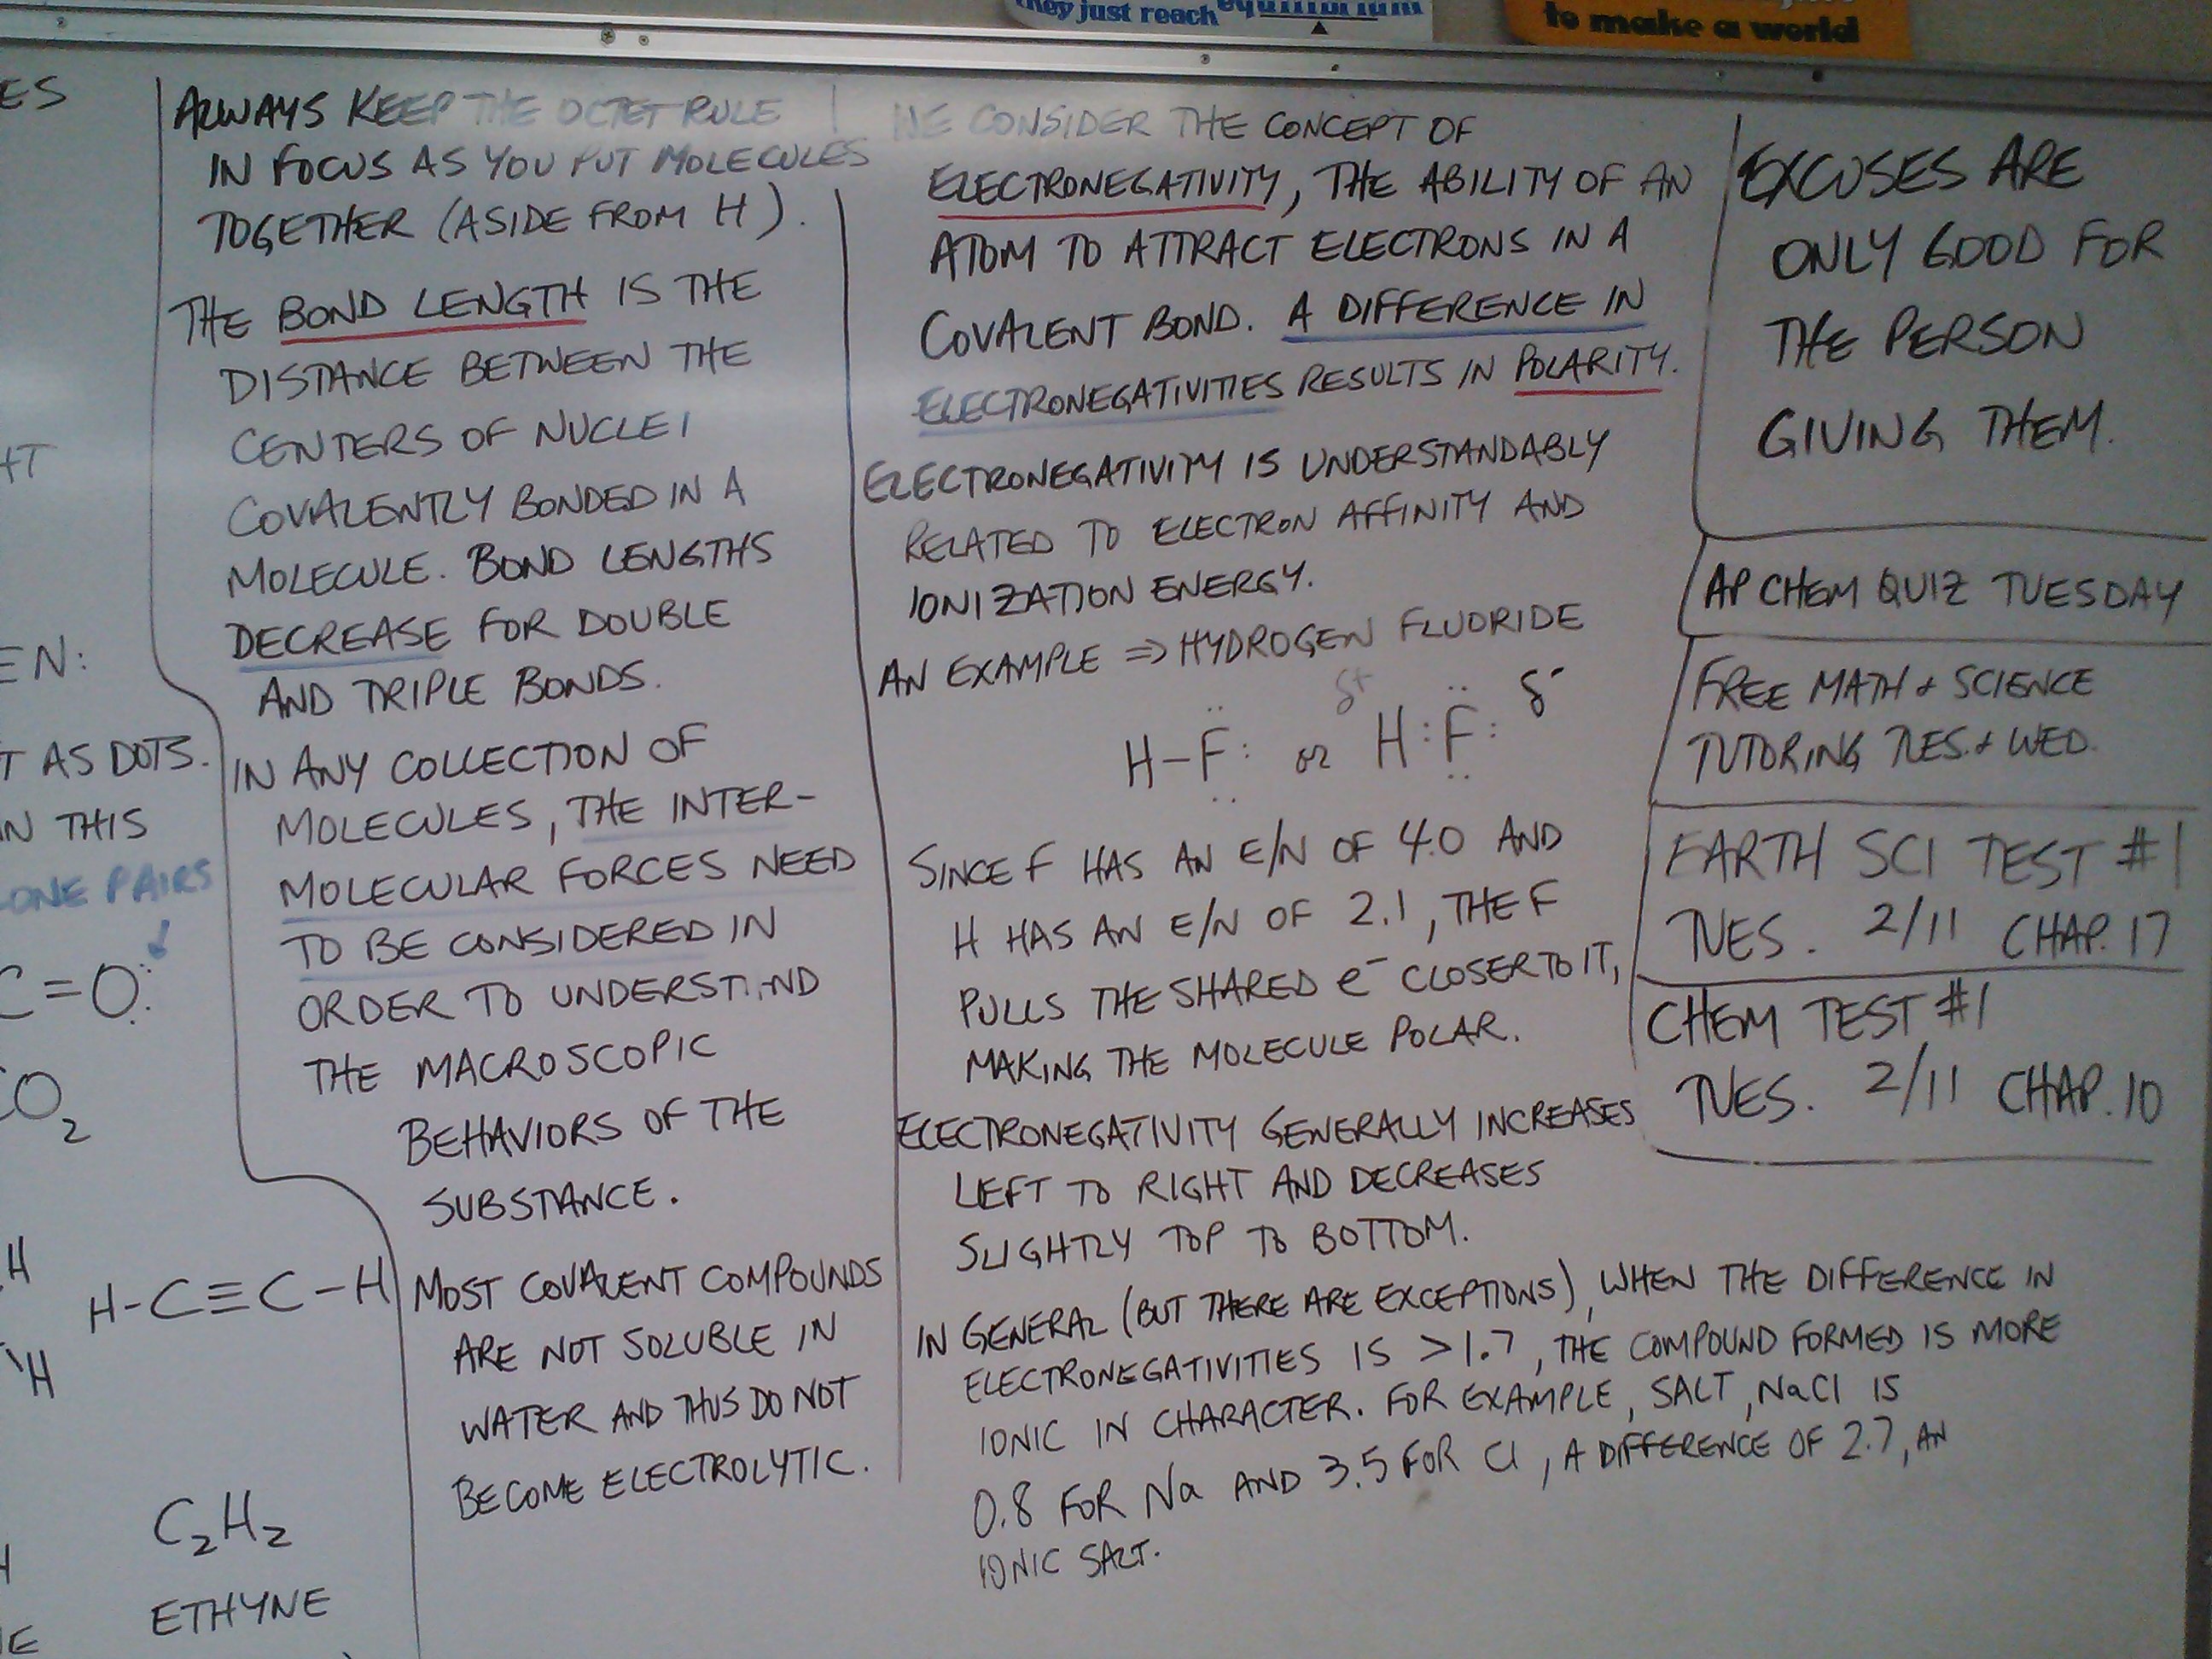 they just reach equilibrium
to make a world
ES
HT
EN:
T AS DOTS.
IN THIS
LONE PAIRS
C=O
CO2
H
H-C≡C-H
H
C2H2
ETHYNE
ALWAYS KEEP THE OCTET RULE
IN FOCUS AS YOU PUT MOLECULES
TOGETHER (ASIDE FROM H).
THE BOND LENGTH IS THE
DISTANCE BETWEEN THE
CENTERS OF NUCLEI
COVALENTLY BONDED IN A
MOLECULE. BOND LENGTHS
DECREASE FOR DOUBLE
AND TRIPLE BONDS.
IN ANY COLLECTION OF
MOLECULES, THE INTER-
MOLECULAR FORCES NEED
TO BE CONSIDERED IN
ORDER TO UNDERSTAND
THE MACROSCOPIC
BEHAVIORS OF THE
SUBSTANCE.
MOST COVALENT COMPOUNDS
ARE NOT SOLUBLE IN
WATER AND THUS DO NOT
BECOME ELECTROLYTIC.
WE CONSIDER THE CONCEPT OF
ELECTRONEGATIVITY, THE ABILITY OF AN
ATOM TO ATTRACT ELECTRONS IN A
COVALENT BOND. A DIFFERENCE IN
ELECTRONEGATIVITIES RESULTS IN POLARITY.
ELECTRONEGATIVITY IS UNDERSTANDABLY
RELATED TO ELECTRON AFFINITY AND
IONIZATION ENERGY.
AN EXAMPLE ⇒ HYDROGEN FLUORIDE
δ+ δ-
H-F: or H:F:
SINCE F HAS AN E/N OF 4.0 AND
H HAS AN E/N OF 2.1, THE F
PULLS THE SHARED e- CLOSER TO IT,
MAKING THE MOLECULE POLAR.
ELECTRONEGATIVITY GENERALLY INCREASES
LEFT TO RIGHT AND DECREASES
SLIGHTLY TOP TO BOTTOM.
IN GENERAL (BUT THERE ARE EXCEPTIONS), WHEN THE DIFFERENCE IN
ELECTRONEGATIVITIES IS >1.7, THE COMPOUND FORMED IS MORE
IONIC IN CHARACTER. FOR EXAMPLE, SALT, NaCl IS
0.8 FOR Na AND 3.5 FOR Cl, A DIFFERENCE OF 2.7, AN
IONIC SALT.
EXCUSES ARE
ONLY GOOD FOR
THE PERSON
GIVING THEM.
AP CHEM QUIZ TUESDAY
FREE MATH + SCIENCE
TUTORING TUES. + WED.
EARTH SCI TEST #1
TUES. 2/11 CHAP. 17
CHEM TEST #1
TUES. 2/11 CHAP. 10